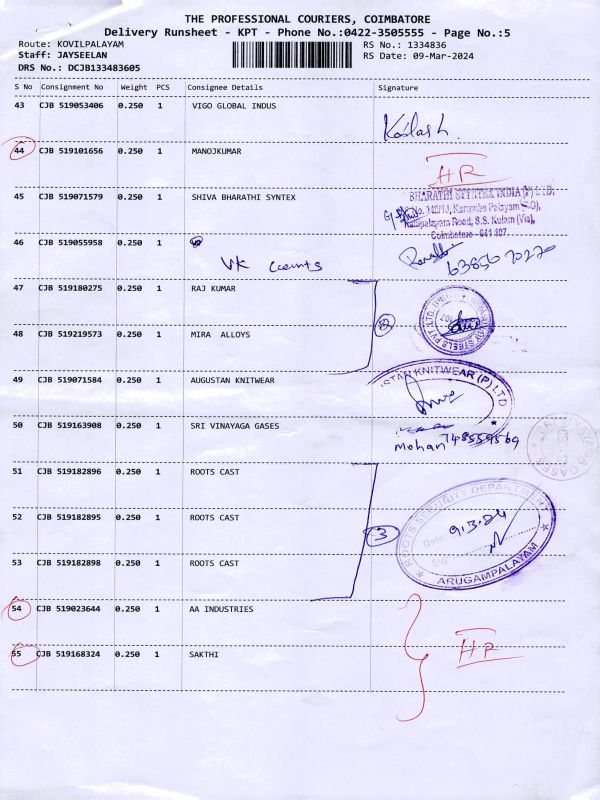 THE PROFESSIONAL COURIERS, COIMBATORE
Delivery Runsheet - KPT - Phone No.:0422-3505555 - Page No.:5
Route: KOVILPALAYAM RS No.: 1334836
Staff: JAYSEELAN RS Date: 09-Mar-2024
DRS No.: DCJB133483605
S No Consignment No Weight PCS Consignee Details Signature
43 CJB 519053406 0.250 1 VIGO GLOBAL INDUS
Kailash.
44 CJB 519101656 0.250 1 MANOJKUMAR
HR
45 CJB 519071579 0.250 1 SHIVA BHARATHI SYNTEX
BHARATHI SYNTEX INDIA (P) LTD.
Palayam (P.O),
Road, S.S. Kulam (Via),
Coimbatore - 641 107.
46 CJB 519055958 0.250 1
VK
47 CJB 519180275 0.250 1 RAJ KUMAR
2
48 CJB 519219573 0.250 1 MIRA ALLOYS
49 CJB 519071584 0.250 1 AUGUSTAN KNITWEAR
STAN KNITWEAR (P) LTD
50 CJB 519163908 0.250 1 SRI VINAYAGA GASES
Mohan
51 CJB 519182896 0.250 1 ROOTS CAST
ROOTS SECURITY DEPARTMENT
52 CJB 519182895 0.250 1 ROOTS CAST
3
Date 9.3.24
Sig
53 CJB 519182898 0.250 1 ROOTS CAST
ARUGAMPALAYAM
54 CJB 519023644 0.250 1 AA INDUSTRIES
55 CJB 519168324 0.250 1 SAKTHI
HR